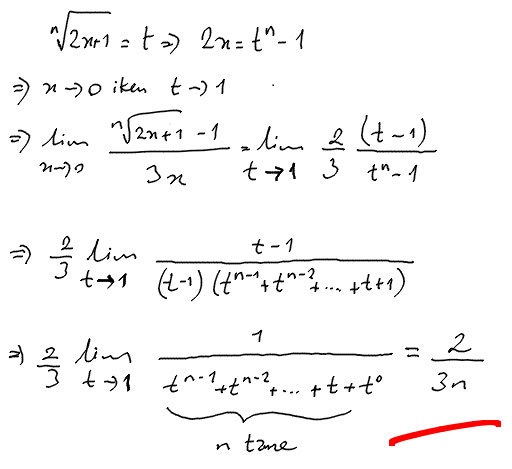 ⁿ√(2x+1) = t ⇒ 2x = tⁿ - 1
⇒ x → 0 iken t → 1
⇒ lim_{x→0} (ⁿ√(2x+1) - 1)/(3x) = lim_{t→1} 2/3 (t-1)/(tⁿ-1)
⇒ 2/3 lim_{t→1} (t-1)/((t-1)(tⁿ⁻¹+tⁿ⁻²+...+t+1))
⇒ 2/3 lim_{t→1} 1/(tⁿ⁻¹+tⁿ⁻²+...+t+t⁰) = 2/(3n)
n tane